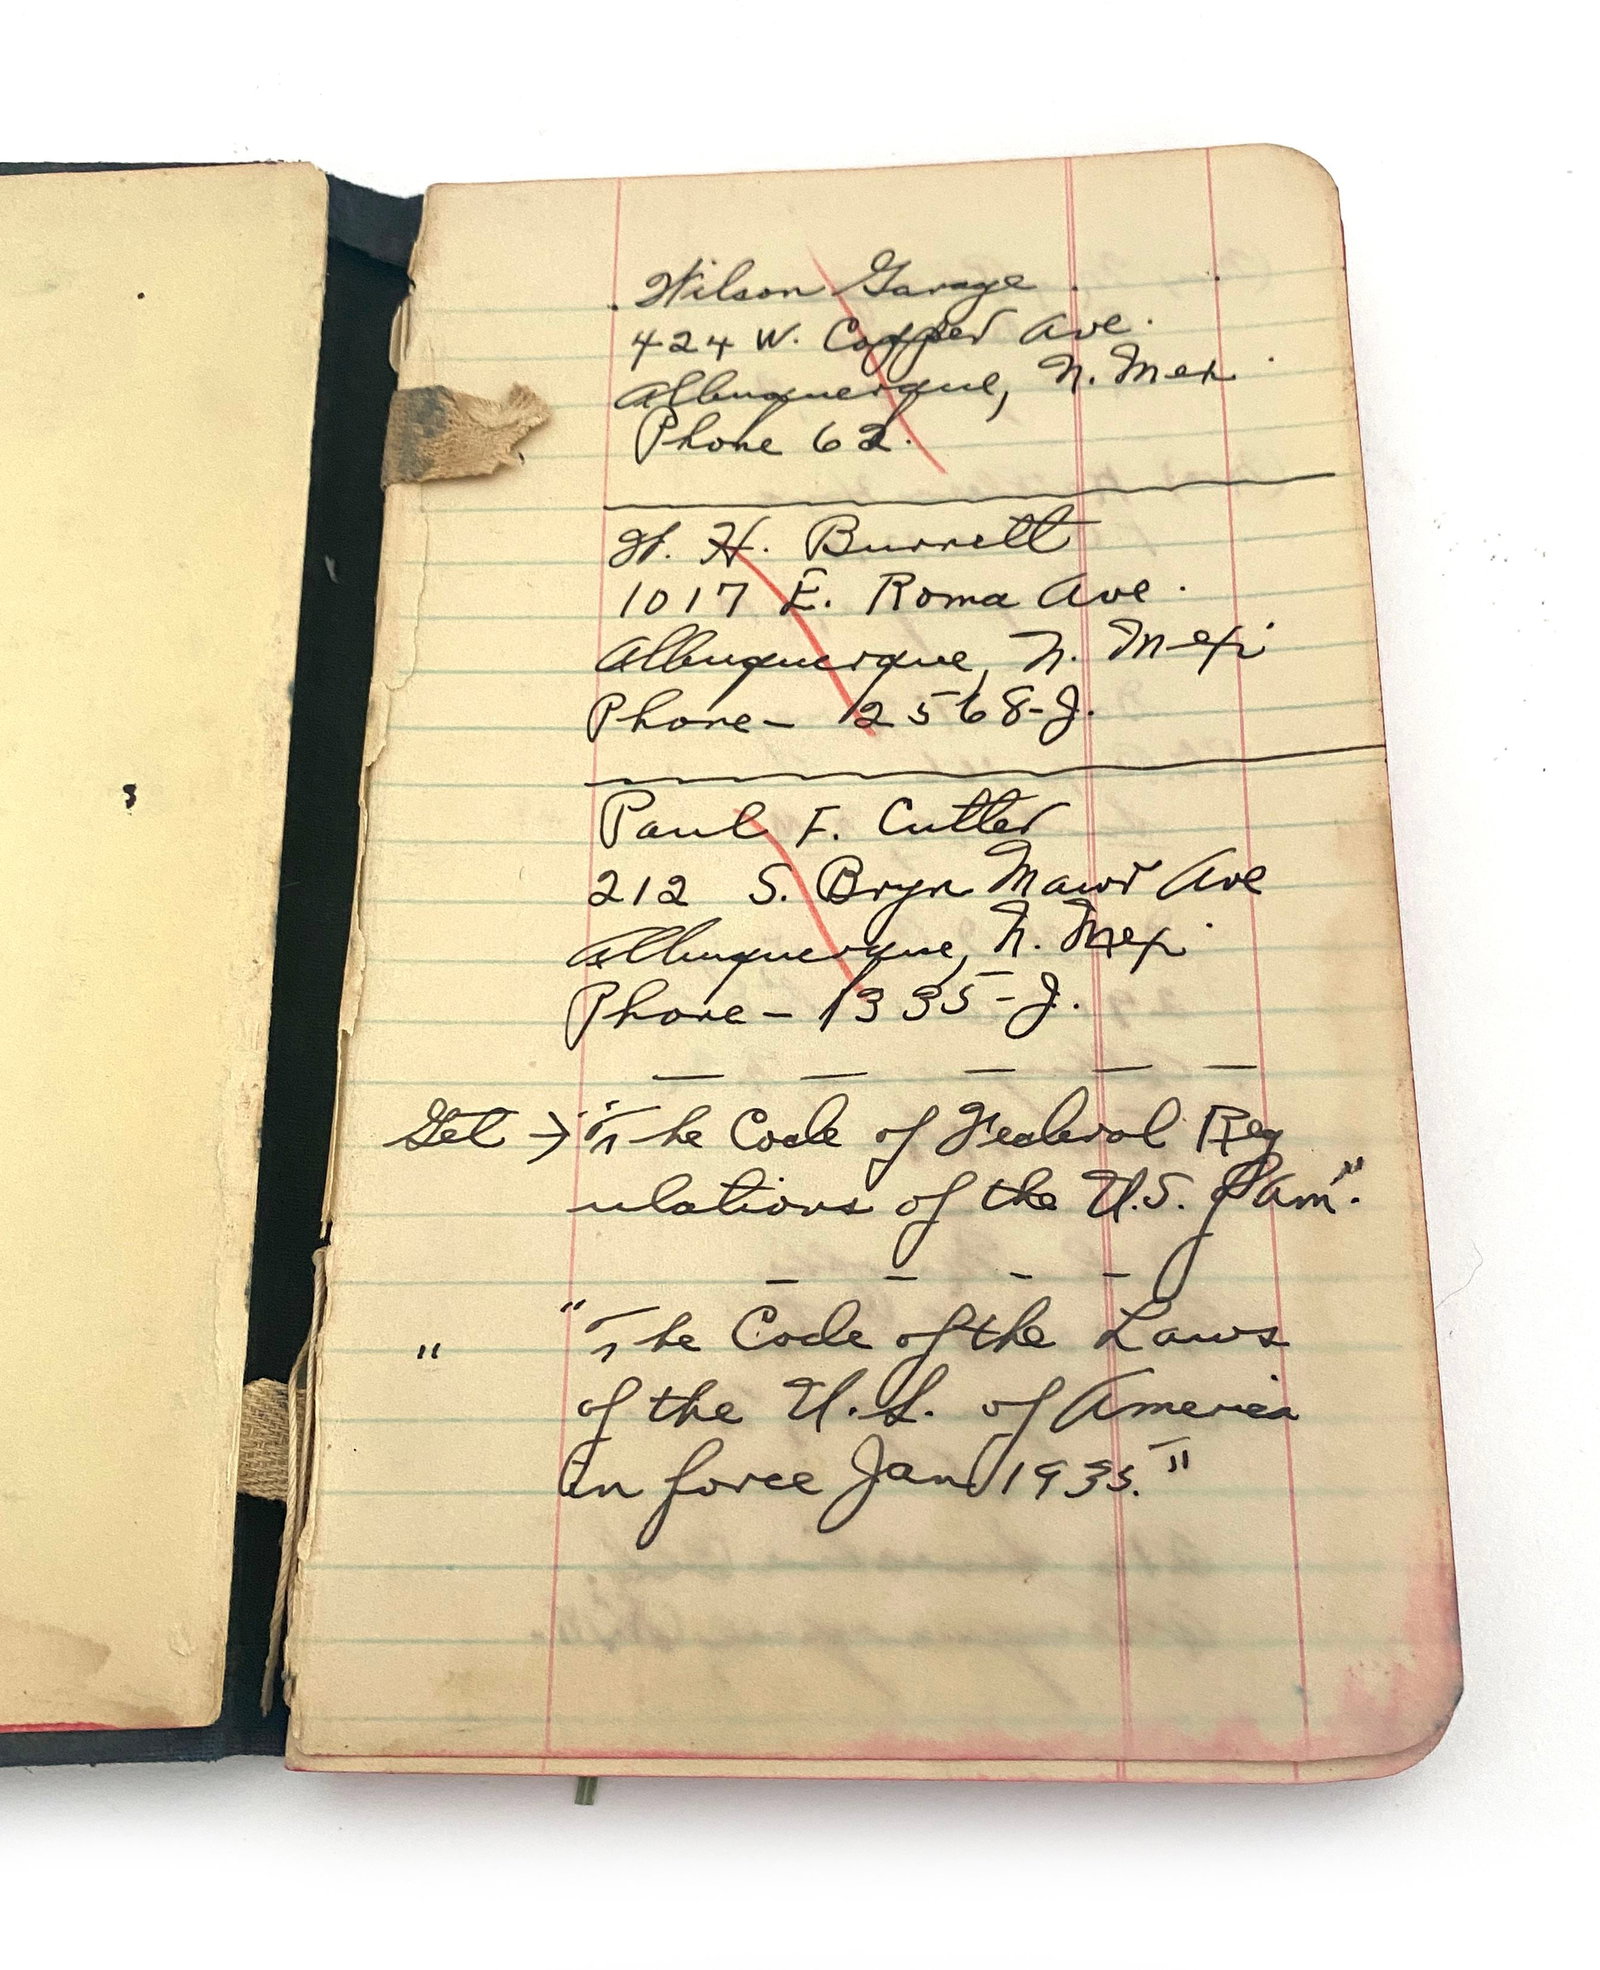 Wilson Garage.
424 W. Copper Ave.
Albuquerque, N. Mex.
Phone 62.
W. H. Burrell
1017 E. Roma Ave.
Albuquerque, N. Mex.
Phone- 2568-J.
Paul F. Cutler
212 S. Bryn Mawr Ave
Albuquerque, N. Mex.
Phone- 1335-J.
Get → "The Code of Federal Reg
ulations of the U.S. of Am".
" "The Code of the Laws
of the U.S. of America
in force Jan 1935."